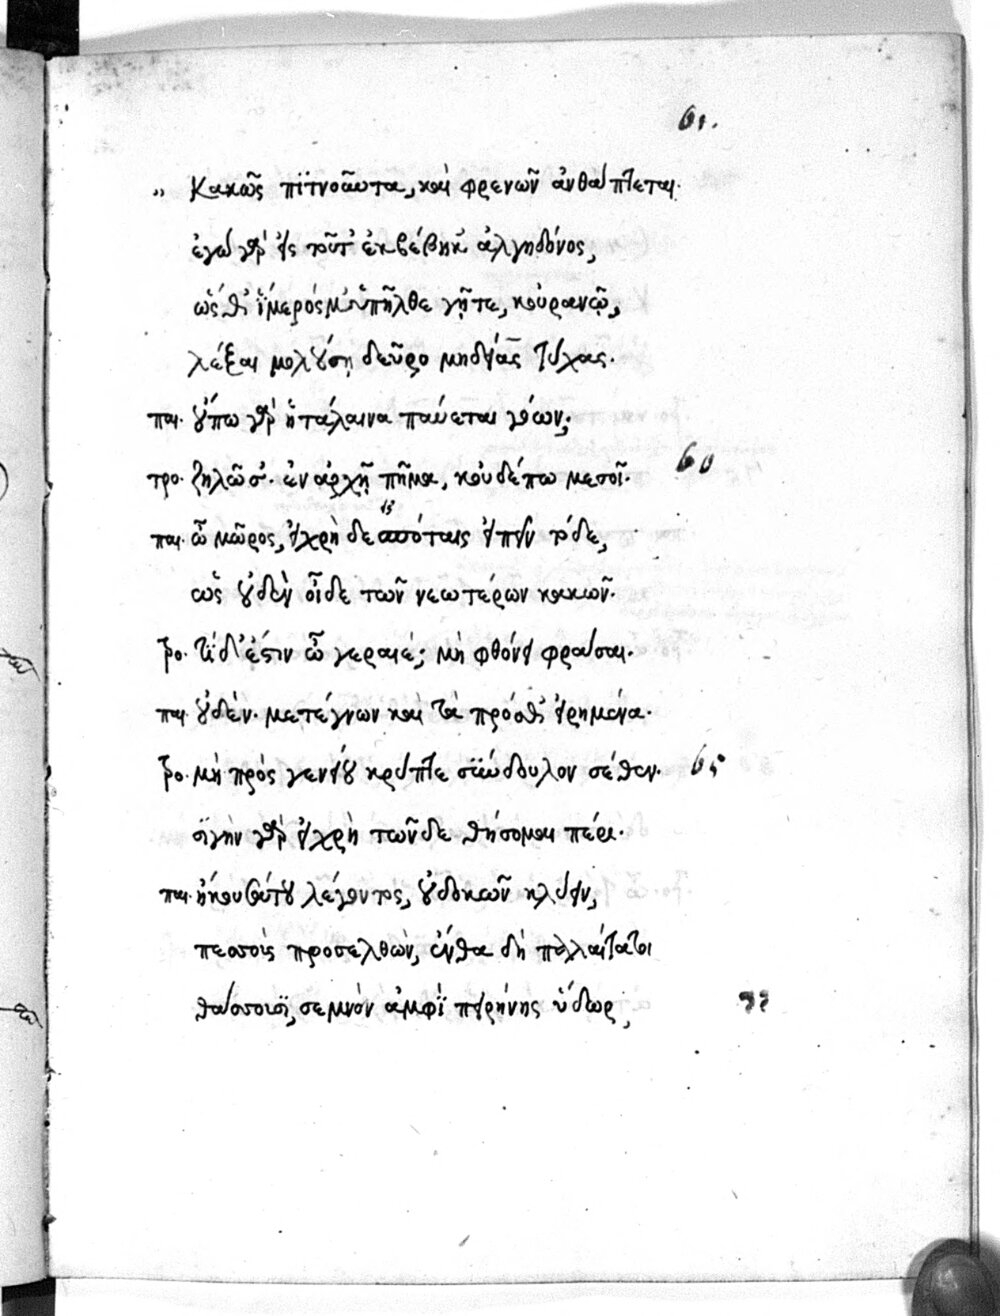 61.
„ Κακῶς πίτνοντα, καὶ φρενῶν ἀνθάπτεται.
ἐγὼ γὰρ εἰς τοῦτ' ἐκβέβηκ' ἀλγηδόνος,
ὥσθ' ἵμερός μ' ὑπῆλθε γῇτε, κοὐρανῷ,
λέξαι μολούσῃ δεῦρο μηδείας τύχας.
παι. οὔπω γὰρ ἡ τάλαινα παύεται γόων;
τρο. ζηλῶ σ'. ἐν ἀρχῇ πῆμα, κοὐδέπω μεσοῖ. 60
παι. ὦ μῶρος, εἰ χρὴ δεσπότας εἰπεῖν τόδε,
ὡς οὐδὲν οἶδε τῶν νεωτέρων κακῶν.
τρο. τί δ' ἐστιν ὦ γεραιέ; μὴ φθόνει φράσαι.
παι. οὐδέν. μετέγνων καὶ τὰ πρόσθ' εἰρημένα.
τρο. μὴ πρὸς γενείου κρύπτε σύνδουλον σέθεν. 65
σιγὴν γὰρ εἰ χρὴ τῶνδε θήσομαι πέρι.
παι. ἤκουσά του λέγοντος, οὐ δοκῶν κλύειν,
πεσσοὺς προσελθών, ἔνθα δὴ παλαίτατοι
θάσσουσι, σεμνὸν ἀμφὶ πειρήνης ὕδωρ,